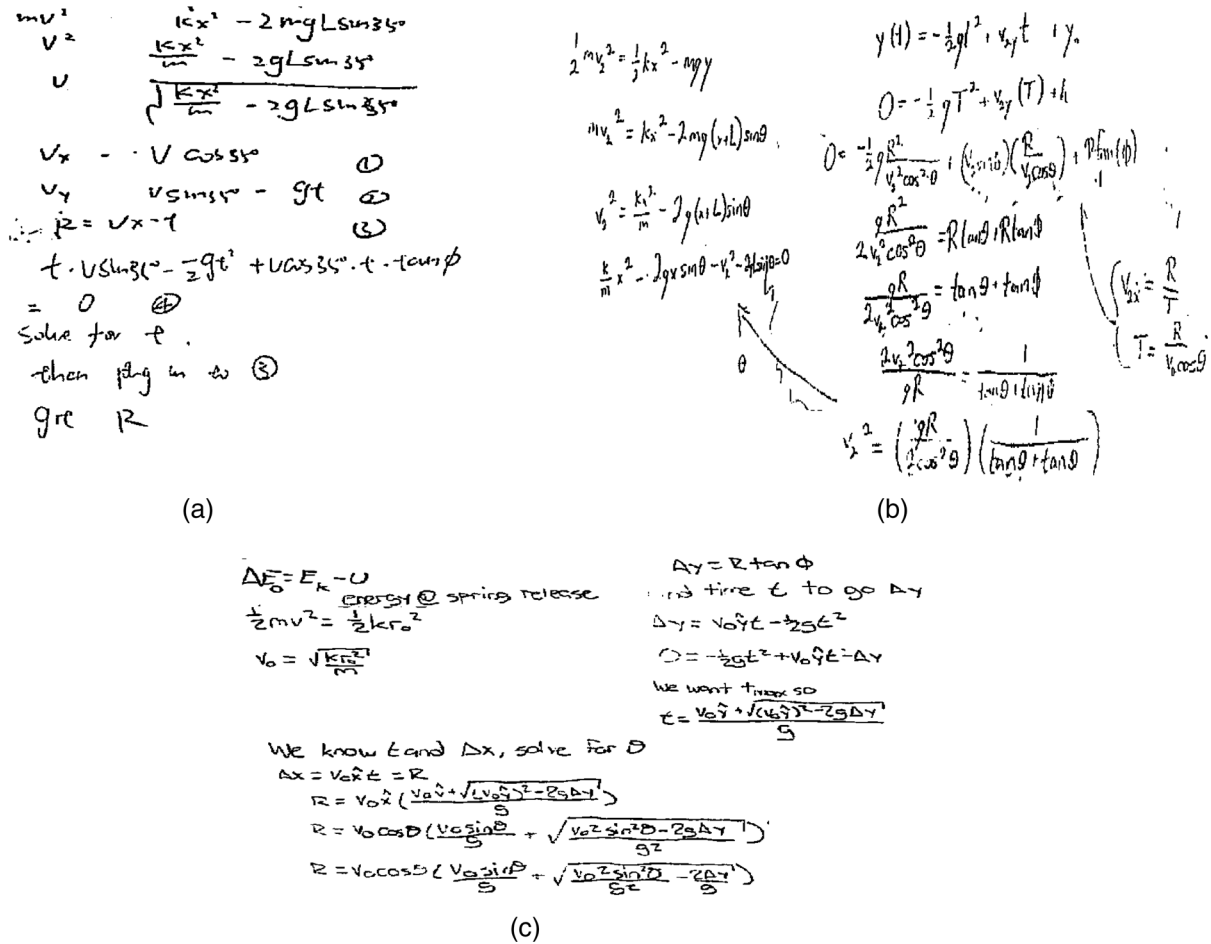 mv² kx² - 2mgLsin35°
v² kx²/m - 2gLsin35°
v √(kx²/m - 2gLsin35°)
Vx - V cos35° ①
Vy Vsin35° - gt ②
R = Vx - t ③
t · Vsin35° - ½gt² + Vcos35° · t · tanφ
= 0 ④
Solve for t.
then in to ③
R
(a)
½mv₂² = ½kx² - mgy
mv₂² = kx² - 2mg(x+L)sinθ
v₂² = kx²/m - 2g(x+L)sinθ
k/m x² - 2gx sinθ - v₂² - 2gLsinθ = 0
θ
y(t) = -½gt² + v₂yt + y₀
0 = -½gT² + v₂y(T) + h
0 = -½g R²/(v₂²cos²θ) + (v₂sinθ)(R/(v₂cosθ)) + Rtan(φ)
gR²/(2v₂²cos²θ) = Rtanθ + Rtanφ
gR/(2v₂²cos²θ) = tanθ + tanφ
v₂x = R/T
T = R/(v₂cosθ)
2v₂²cos²θ/(gR) = 1/(tanθ + tanφ)
v₂² = (gR/(2cos²θ))(1/(tanθ + tanθ))
(b)
ΔE₀ = Eₖ - U
energy @ spring release
½mv² = ½kr₀²
v₀ = √(kr₀²/m)
Δy = R tan φ
time t to go Δy
Δy = v₀ŷt - ½gt²
0 = -½gt² + v₀ŷt - Δy
we want tmax so
t = (v₀ŷ + √((v₀ŷ)² - 2gΔy))/g
We know t and Δx, solve for θ
Δx = v₀x̂t = R
R = v₀x̂((v₀ŷ + √((v₀ŷ)² - 2gΔy))/g)
R = v₀cosθ(v₀sinθ/g + √((v₀²sin²θ - 2gΔy)/g²))
R = v₀cosθ(v₀sinθ/g + √(v₀²sin²θ/g² - 2Δy/g))
(c)